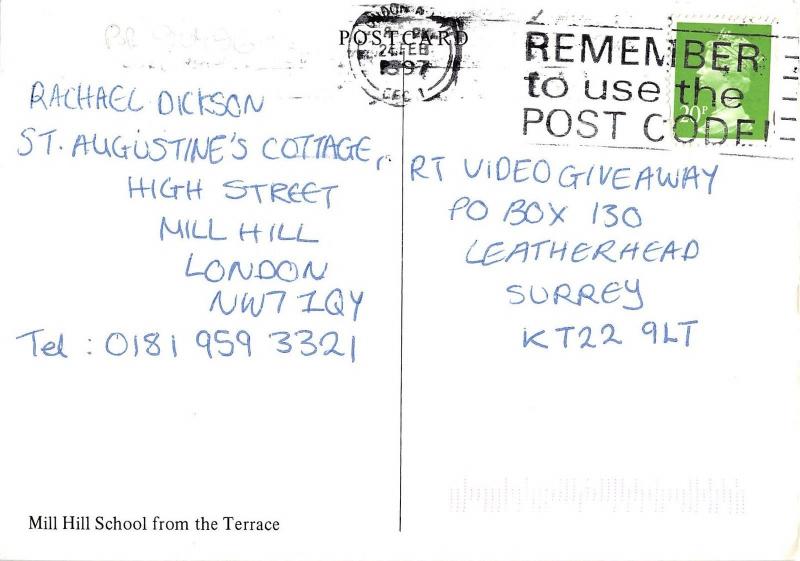 POSTCARD
LONDON
24 FEB
1997
REMEMBER
to use the
POST CODE!
20P
RACHAEL DICKSON
ST. AUGUSTINE'S COTTAGE,
HIGH STREET
MILL HILL
LONDON
NW7 1QY
Tel : 0181 959 3321
RT VIDEO GIVEAWAY
PO BOX 130
LEATHERHEAD
SURREY
KT22 9LT
Mill Hill School from the Terrace